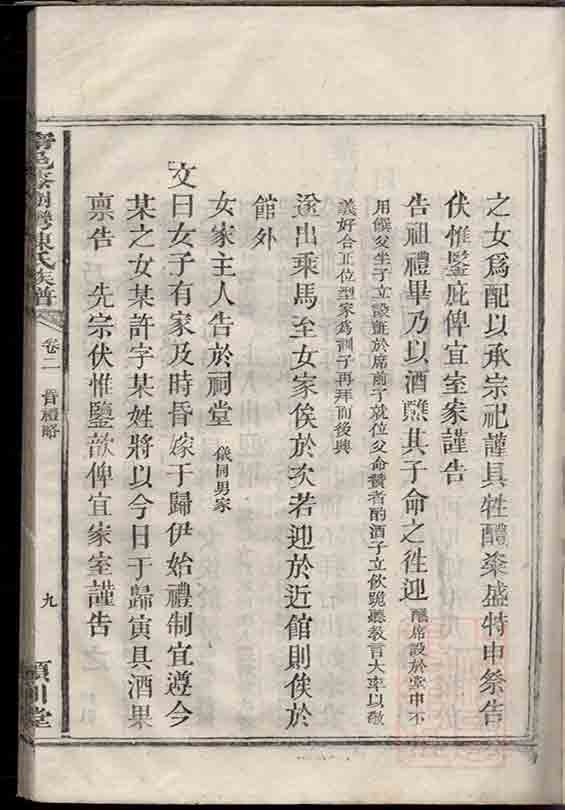 之女爲配以承宗祀謹具牲醴粢盛特申祭告
伏惟鑒庇俾宜室家謹告
告祖禮畢乃以酒醮其子命之徃迎 醮席設於堂中不
用饌父坐子立設氈於席前子就位父命贊者酌酒子立飲跪聽教言大率以敬
義好合正位型家為訓子再拜而後興
遂出乘馬至女家俟於次若迎於近館則俟於
館外
女家主人告於祠堂 儀同男家
文曰女子有家及時昏嫁于歸伊始禮制宜遵今
某之女某許字某姓將以今日于歸寅具酒果
禀告 先宗伏惟鑒歆俾宜家室謹告
陳氏族譜
卷二 昏禮略
九
潁川堂